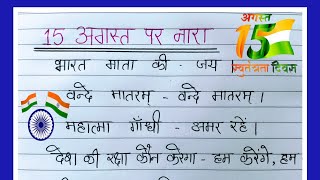 15 अगस्त पर नारा
अगस्त
15
स्वतंत्रता दिवस
भारत माता की - जय
वन्दे मातरम् - वन्दे मातरम् ।
महात्मा गाँधी - अमर रहें ।
देश की रक्षा कौन करेगा - हम करेंगे, हम